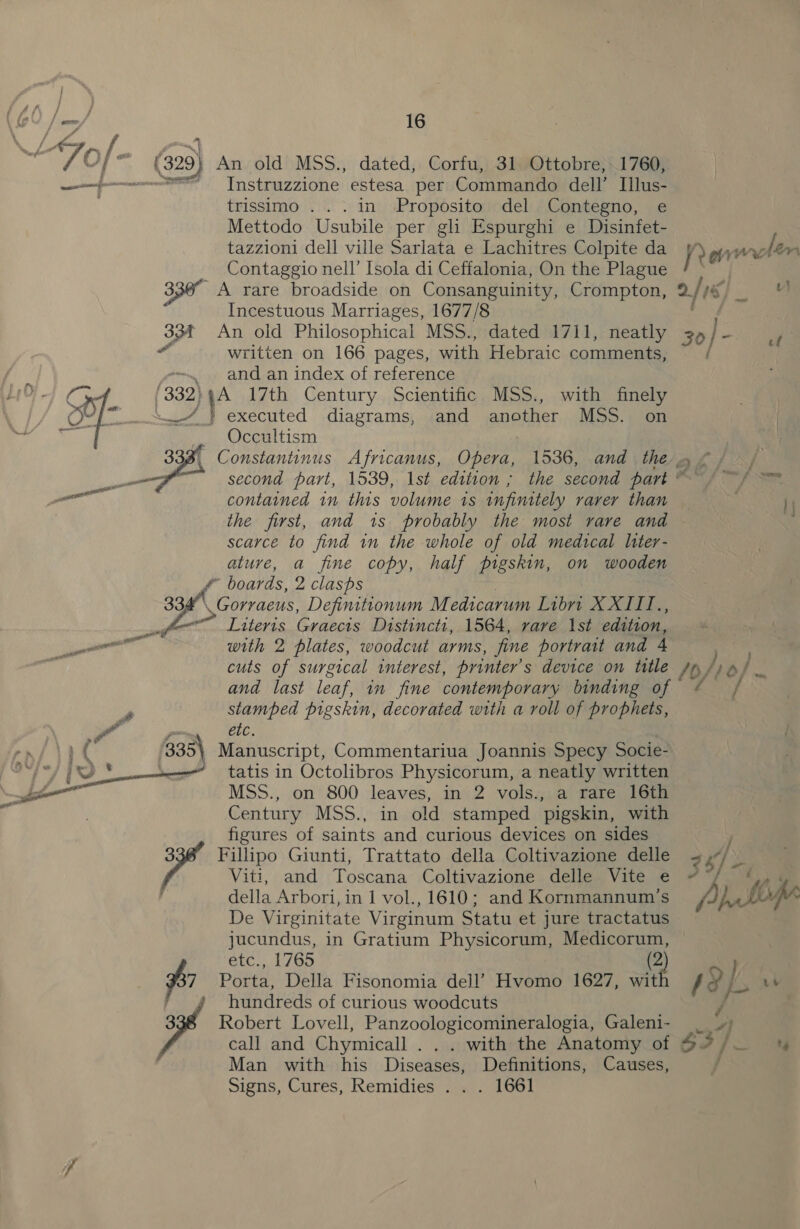 16
70/- (329) An old MSS., dated, Corfu, 31 Ottobre, 1760,
Instruzzione estesa per Commando dell' Illus-
trissimo . . . in Proposito del Contegno, e
Mettodo Usubile per gli Espurghi e Disinfet-
tazzioni dell ville Sarlata e Lachitres Colpite da
Contaggio nell' Isola di Ceffalonia, On the Plague
330 A rare broadside on Consanguinity, Crompton,
Incestuous Marriages, 1677/8
331 An old Philosophical MSS., dated 1711, neatly 30/-
written on 166 pages, with Hebraic comments,
and an index of reference
50/- (332) A 17th Century Scientific MSS., with finely
executed diagrams, and another MSS. on
Occultism
333 Constantinus Africanus, Opera, 1536, and the
second part, 1539, 1st edition ; the second part
contained in this volume is infinitely rarer than
the first, and is probably the most rare and
scarce to find in the whole of old medical liter-
ature, a fine copy, half pigskin, on wooden
boards, 2 clasps
334 Gorraeus, Definitionum Medicarum Libri XXIII.,
Literis Graecis Distincti, 1564, rare 1st edition,
with 2 plates, woodcut arms, fine portrait and 4
cuts of surgical interest, printer's device on title
and last leaf, in fine contemporary binding of
stamped pigskin, decorated with a roll of prophets,
etc.
(335) Manuscript, Commentariua Joannis Specy Socie-
tatis in Octolibros Physicorum, a neatly written
MSS., on 800 leaves, in 2 vols., a rare 16th
Century MSS., in old stamped pigskin, with
figures of saints and curious devices on sides
336 Fillipo Giunti, Trattato della Coltivazione delle
Viti, and Toscana Coltivazione delle Vite e
della Arbori, in 1 vol., 1610; and Kornmannum's
De Virginitate Virginum Statu et jure tractatus
jucundus, in Gratium Physicorum, Medicorum,
etc., 1765 (2)
337 Porta, Della Fisonomia dell' Hvomo 1627, with
hundreds of curious woodcuts
338 Robert Lovell, Panzoologicomineralogia, Galeni-
call and Chymicall . . . with the Anatomy of
Man with his Diseases, Definitions, Causes,
Signs, Cures, Remidies . . . 1661